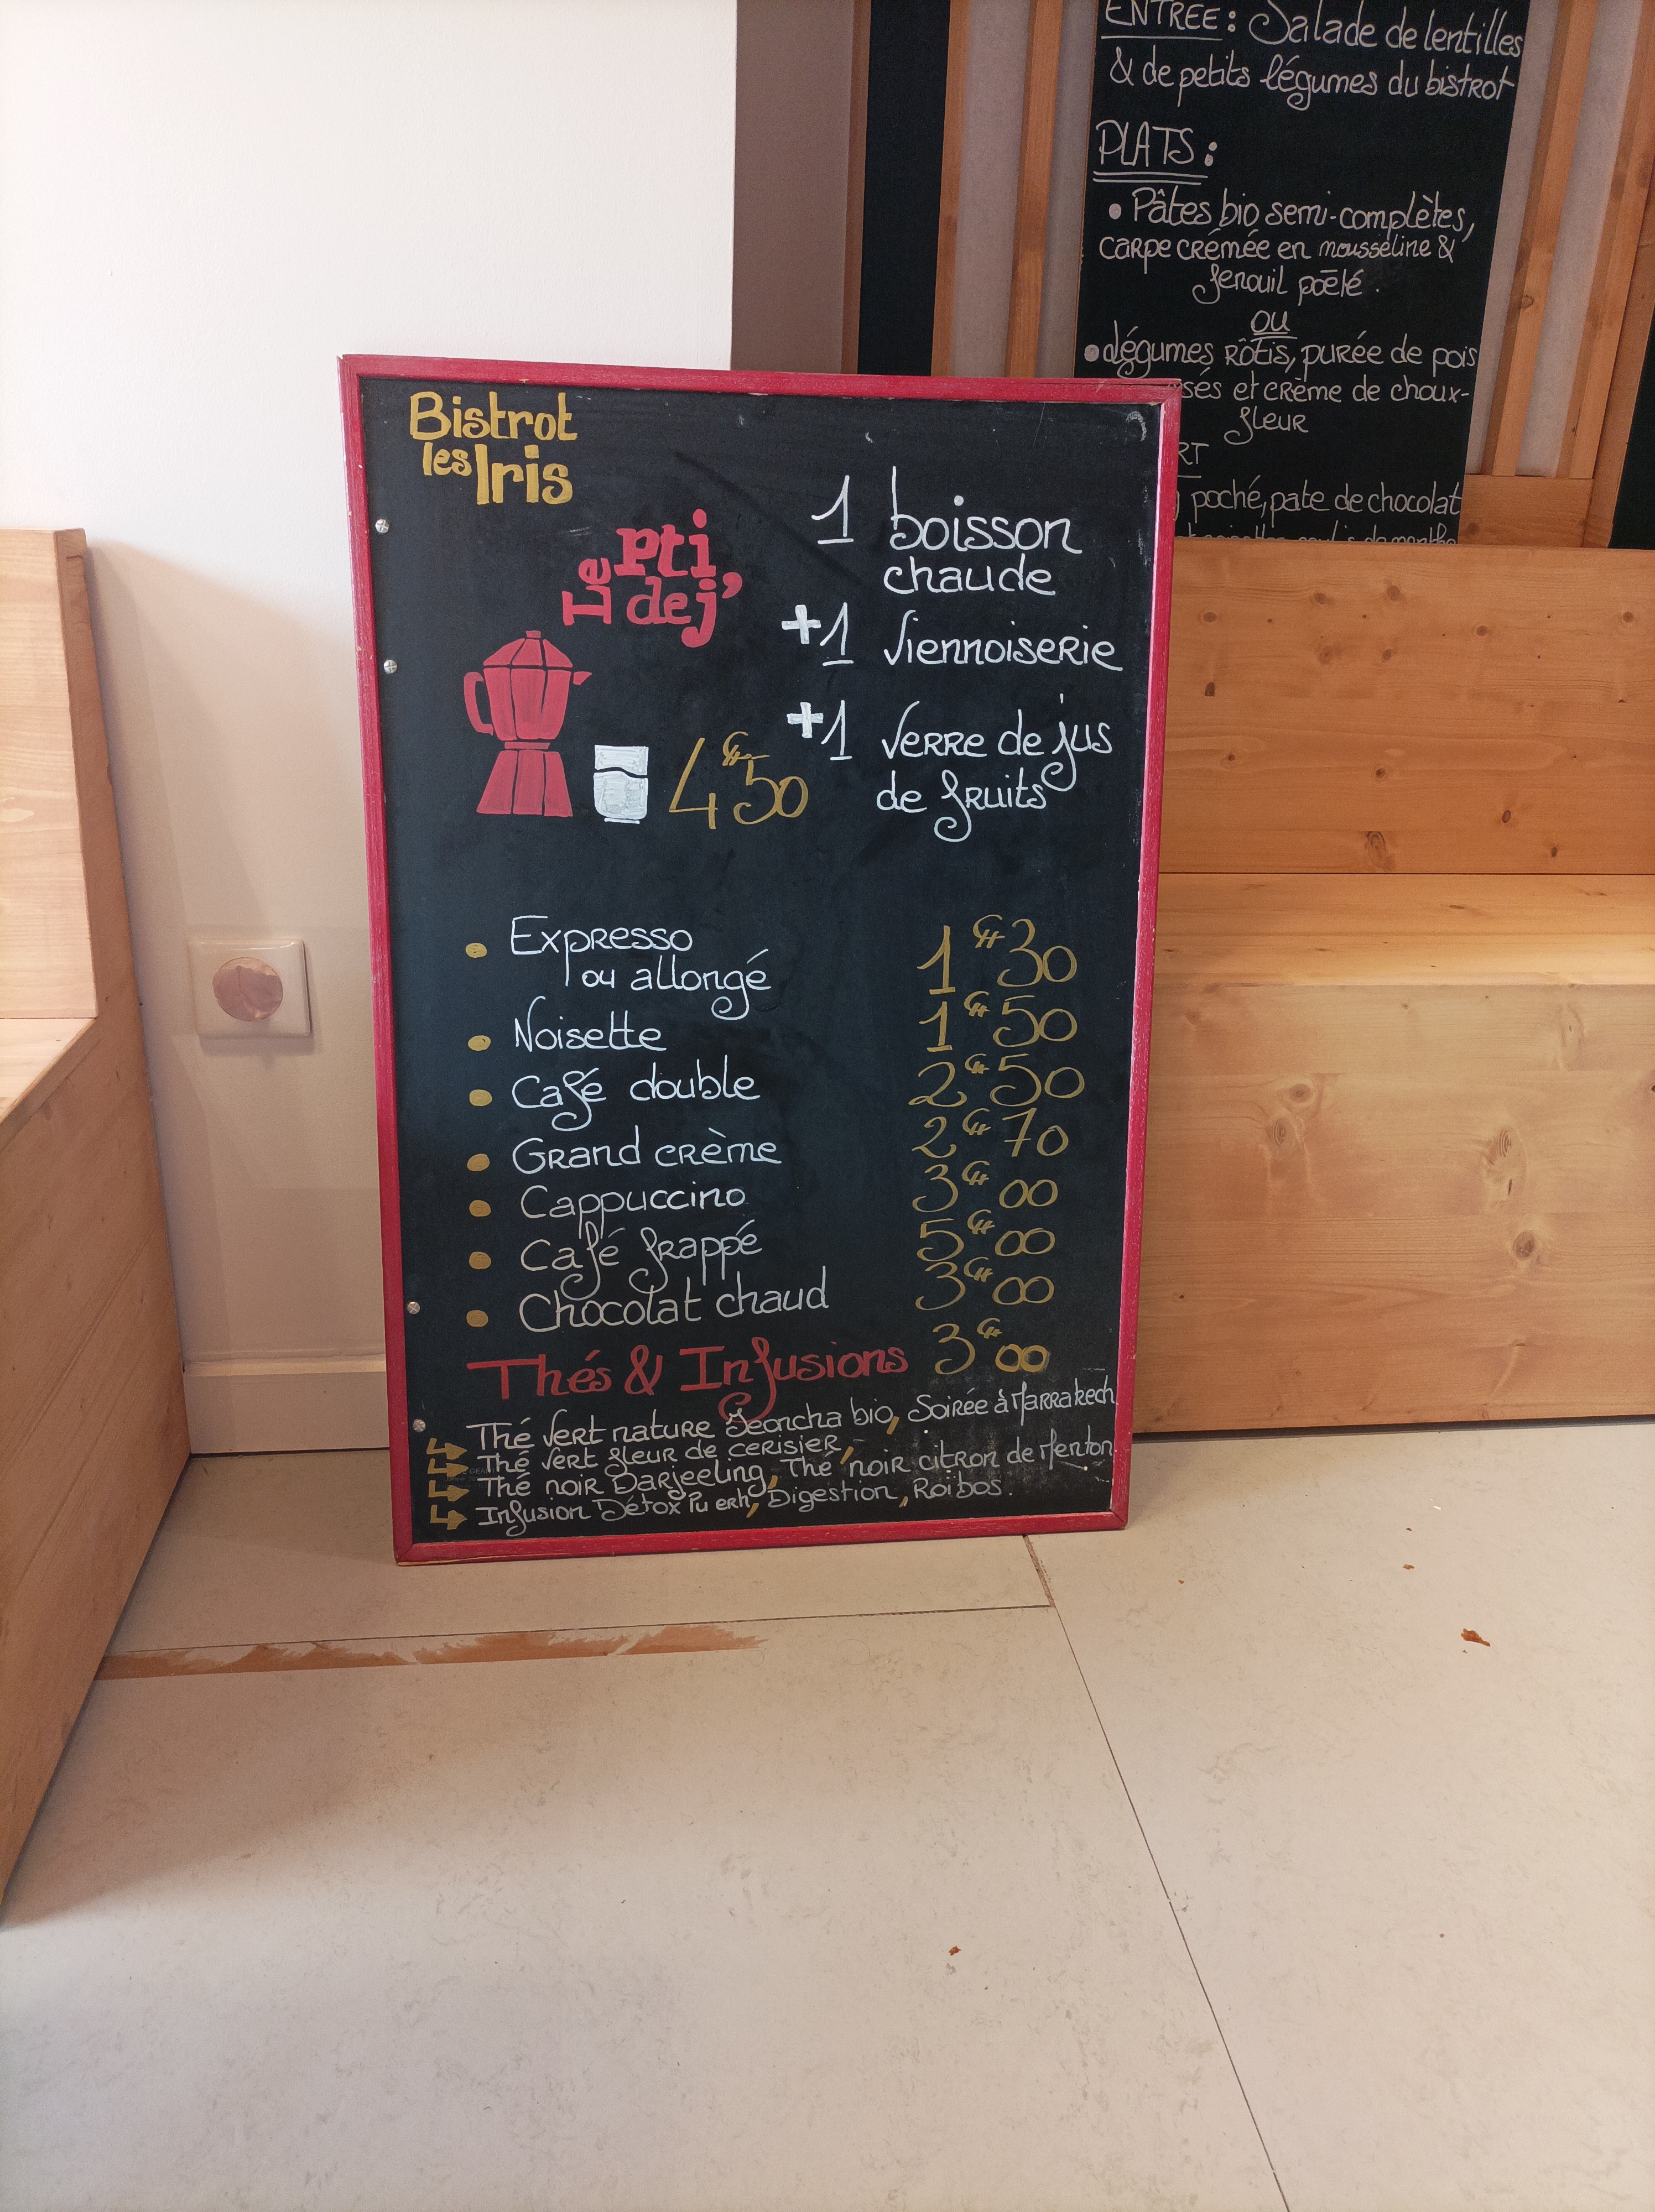 ENTREE : Salade de lentilles
& de petits légumes du bistrot
PLATS :
• Pâtes bio semi-complètes,
carpe crémée en mousseline &
fenouil poêlé .
OU
• légumes rôtis, purée de pois
et crème de choux-
fleur
poché, pate de chocolat
Bistrot
les Iris
Le pti
dej'
4€50
1 boisson
chaude
+1 Viennoiserie
+1 verre de jus
de fruits
• Expresso
ou allongé 1€30
• Noisette 1€50
• Café double 2€50
• Grand crème 2€70
• Cappuccino 3€00
• Café frappé 5€00
• Chocolat chaud 3€00
Thés & Infusions 3€00
Thé vert nature bio, Soirée à Marrakech
Thé vert fleur de cerisier,
Thé noir Darjeeling, Thé noir citron de Menton
Infusion Détox Pu erh, Digestion, Roïbos.